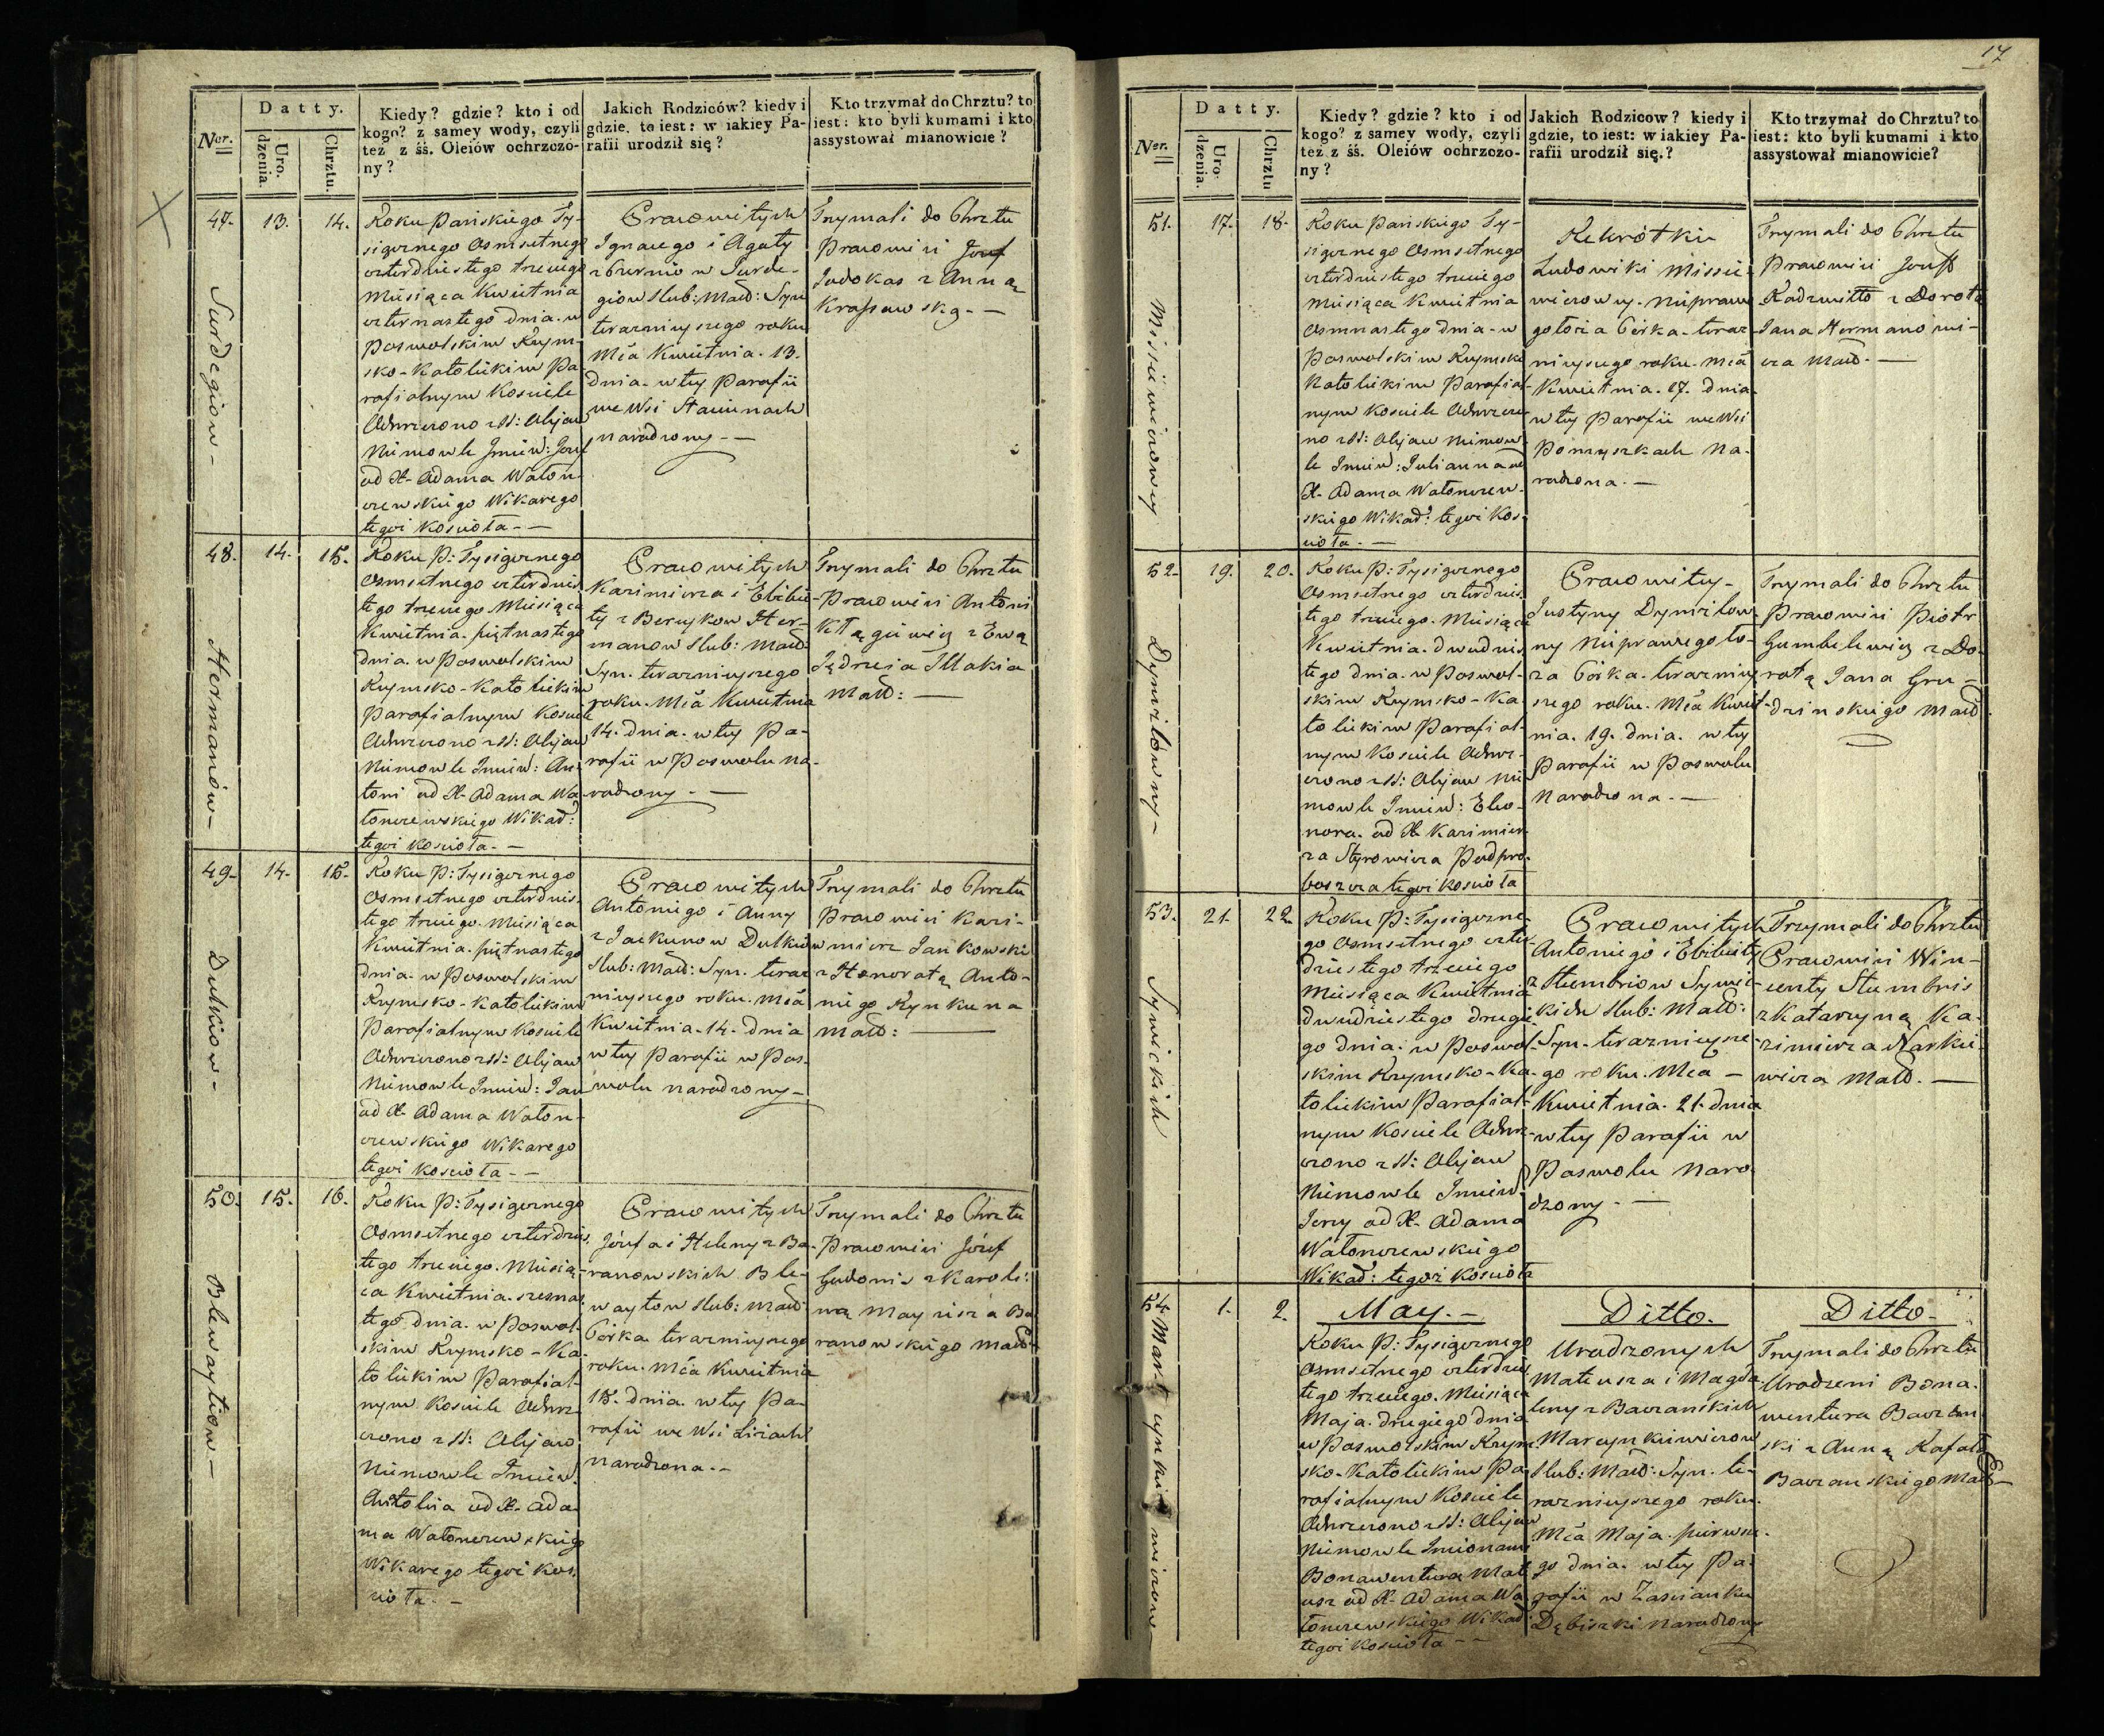 17
Ner.
Datty.
Uro-
dzenia.
Chrztu.
Kiedy? gdzie? kto i od
kogo? z samey wody, czyli
też z śś. Oleiów ochrzczo-
ny?
Jakich Rodziców? kiedy i
gdzie, to iest: w iakiey Pa-
rafii urodził się?
Kto trzymał do Chrztu? to
iest: kto byli kumami i kto
assystował mianowicie?
47.
Surdegiow
13.
14.
Roku Pańskiego Ty-
siącznego Osmsetnego
czterdziestego trzeciego
Miesiąca Kwietnia
czternastego dnia. w
Poswolskim Rzym-
sko-Katolickim Pa-
rafialnym Kosciele
Ochrzczono z SS: Olejow
Niemowle Imień: Jozef
od X. Adama Waton-
czewskiego Wikarego
tegoż Koscioła
Prawowitych
Ignacego i Agaty
w Surde-
giow Slub: Małż: Syn
terazniejszego roku
Mca Kwietnia. 13.
dnia. w tej Parafii
we Wsi Staciunach
narodzony
Trzymali do Chrztu
Pracowici Jozef
Judokas z Anną
Krassowską
48.
Hermanów
14.
15.
Roku P: Tysiącznego
Osmsetnego czterdzies-
tego trzeciego Miesiąca
Kwietnia. piętnastego
dnia. w Poswolskim
Rzymsko-Katolickim
Parafialnym Kosciele
Ochrzczono z SS: Olejow
Niemowle Imień: An-
toni od X. Adama Wa-
tonczewskiego Wikar:
tegoż Kosciola
Prawowitych
Kazimierza i Elżbie-
ty z Beruykow Her-
manow Slub: Małż:
Syn. terazniejszego
roku. Mca Kwietnia
14. dnia. w tej Pa-
rafii w Poswolu na-
rodzony
Trzymali do Chrztu
Pracowici Antoni
z Ewą
Jędrzeia Illakia
Małż:
49.
Dulkiow
14.
15.
Roku P: Tysiącznego
Osmsetnego czterdzies-
tego trzeciego. Miesiąca
Kwietnia. piętnastego
dnia. w Poswolskim
Rzymsko-Katolickim
Parafialnym Kosciele
Ochrzczono z SS: Olejow
Niemowle Imień: Jan
od X. Adama Waton-
czewskiego Wikarego
tegoż Kosciola
Prawowitych
Antoniego i Anny
z Jackunow Dulkiow
Slub: Małż: Syn. teraz-
niejszego roku. Mca
Kwietnia. 14. dnia
w tej Parafii w Pos-
wolu narodzony
Trzymali do Chrztu
Pracowici Kazi-
mierz Jankowski
z Honoratą Anto-
niego Rynkuna
Małż:
50.
Blewaytiow
15.
16.
Roku P: Tysiącznego
Osmsetnego czterdzies-
tego trzeciego. Miesią-
ca Kwietnia. szesnas-
tego dnia. w Poswol-
skim Rzymsko-Ka-
tolickim Parafial-
nym Kosciele Ochrz-
czono z SS: Olejow
Niemowle Imień:
od X. Ada-
ma Watonczewskiego
Wikarego tegoż Kos-
cioła
Prawowitych
Józefa i Heleny z Ba-
ranowskich Ble-
waytow Slub: Małż:
Córka terazniejszego
roku. Mca Kwietnia
15. dnia. w tej Pa-
rafii we Wsi
narodzona
Trzymali do Chrztu
Pracowici Józef
Gudonis z Karoli-
ną Ba-
ranowskiego Małż:
Ner.
Datty.
Uro-
dzenia.
Chrztu
Kiedy? gdzie? kto i od
kogo? z samey wody, czyli
też z śś. Oleiów ochrzczo-
ny?
Jakich Rodzicow? kiedy i
gdzie, to iest: w iakiey Pa-
rafii urodził się.?
Kto trzymał do Chrztu? to
iest: kto byli kumami i kto
assystował mianowicie?
51.
17.
18.
Roku Pańskiego Ty-
siącznego Osmsetnego
czterdziestego trzeciego
Miesiąca Kwietnia
Osmnastego dnia. w
Poswolskim Rzymsko
Katolickim Parafial-
nym Kosciele Ochrzczo-
no z SS: Olejow Niemow-
le Imień: Julianna od
X. Adama Watonczew-
skiego Wikar: tegoż Kos-
cioła
Rekrótki
Ludowiki
Niepraw-
gołoża Córka. teraz-
niejszego roku. Mca
Kwietnia. 17. dnia.
w tej Parafii we Wsi
na-
rodzona.
Trzymali do Chrztu
Pracowici
z Dorotą
Jana Hermanowi-
cza Małż.
52.
19.
20.
Roku P: Tysiącznego
Osmsetnego czterdzies-
tego trzeciego. Miesiąca
Kwietnia. dwudzies-
tego dnia. w Poswol-
skim Rzymsko-Ka-
tolickim Parafial-
nym Kosciele Ochrz-
czono z SS: Olejow Nie-
mowle Imień: Eleo-
nora. od X. Kazimier-
za Podpro-
boszcza tegoż Kosciola
Pracowitey
Justyny
ny Nieprawego ło-
ża Córka. terazniej-
szego roku. Mca Kwiet-
nia. 19. dnia. w tej
Parafii w Poswolu
Narodzona.
Trzymali do Chrztu
Pracowici Piotr
Gumbelewicz z Do-
rotą Jana Gru-
dzinskiego Małż
53.
Sywickich
21.
22.
Roku P: Tysiączne-
go Osmsetnego czter-
dziestego trzeciego
Miesiąca Kwietnia
dwudziestego drugie-
go dnia. w Poswol-
skim Rzymsko-Ka-
tolickim Parafial-
nym Kosciele Ochrz-
czono z SS: Olejow
Niemowle Imień
Jerzy od X. Adama
Watonczewskiego
Wikar: tegoż Kosciola
Prawowitych
Antoniego i Elżbiety
z Stumbriow Sywic-
kich Slub: Małż:
Syn. terazniejsze-
go roku. Mca
Kwietnia. 21. dnia
w tej Parafii w
Poswolu Naro-
dzony.
Trzymali do Chrztu
Pracowici Win-
centy Stumbris
z Katarzyną Ka-
zimierza Narkie-
wicza Małż.
54.
1.
2.
May.
Roku P: Tysiącznego
Osmsetnego czterdzies-
tego trzeciego. Miesiąca
Maja. drugiego dnia
w Poswolskim Rzym-
sko-Katolickim Pa-
rafialnym Kosciele
Ochrzczono z SS: Olejow
Niemowle Imionami
Bonawentura Mat-
eusz od X. Adama Wa-
tonczewskiego Wikar:
tegoż Kosciola
Ditto.
Urodzonych
Mateusza i Magda-
leny z
Marcynkiewiczow
Slub: Małż: Syn. te-
razniejszego roku.
Mca Maja. pierwsze-
go dnia. w tej Pa-
rafii w Zascianku
narodzony
Ditto.
Trzymali do Chrztu
Urodzeni Bona-
wentura
ski z Anną Rafała
Małż